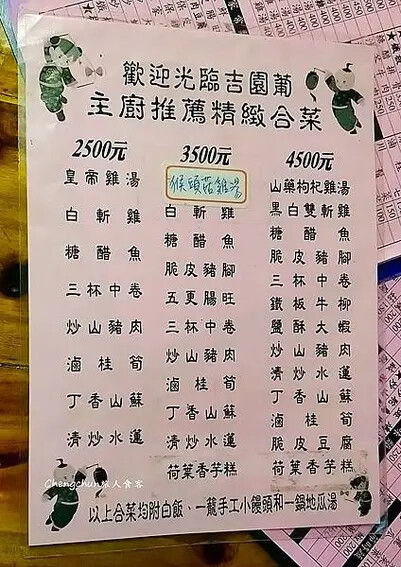 歡迎光臨吉園葡
主廚推薦精緻合菜
2500元
皇帝雞湯
白斬雞
糖醋魚
三杯中卷
炒山豬肉
滷桂筍
丁香山蘇
清炒水蓮
3500元
猴頭菇雞湯
白斬雞
糖醋魚
脆皮豬腳
五更腸旺
三杯中卷
炒山豬肉
滷桂筍
丁香山蘇
清炒水蓮
荷葉香芋糕
4500元
山藥枸杞雞湯
黑白雙斬雞
糖醋魚
脆皮豬腳
三杯中卷
鐵板牛柳
鹽酥大蝦
炒山豬肉
清炒水蓮
丁香山蘇
滷桂筍
脆皮豆腐
荷葉香芋糕
以上合菜均附白飯、一籠手工小饅頭和一鍋地瓜湯
Chengchun旅人食客